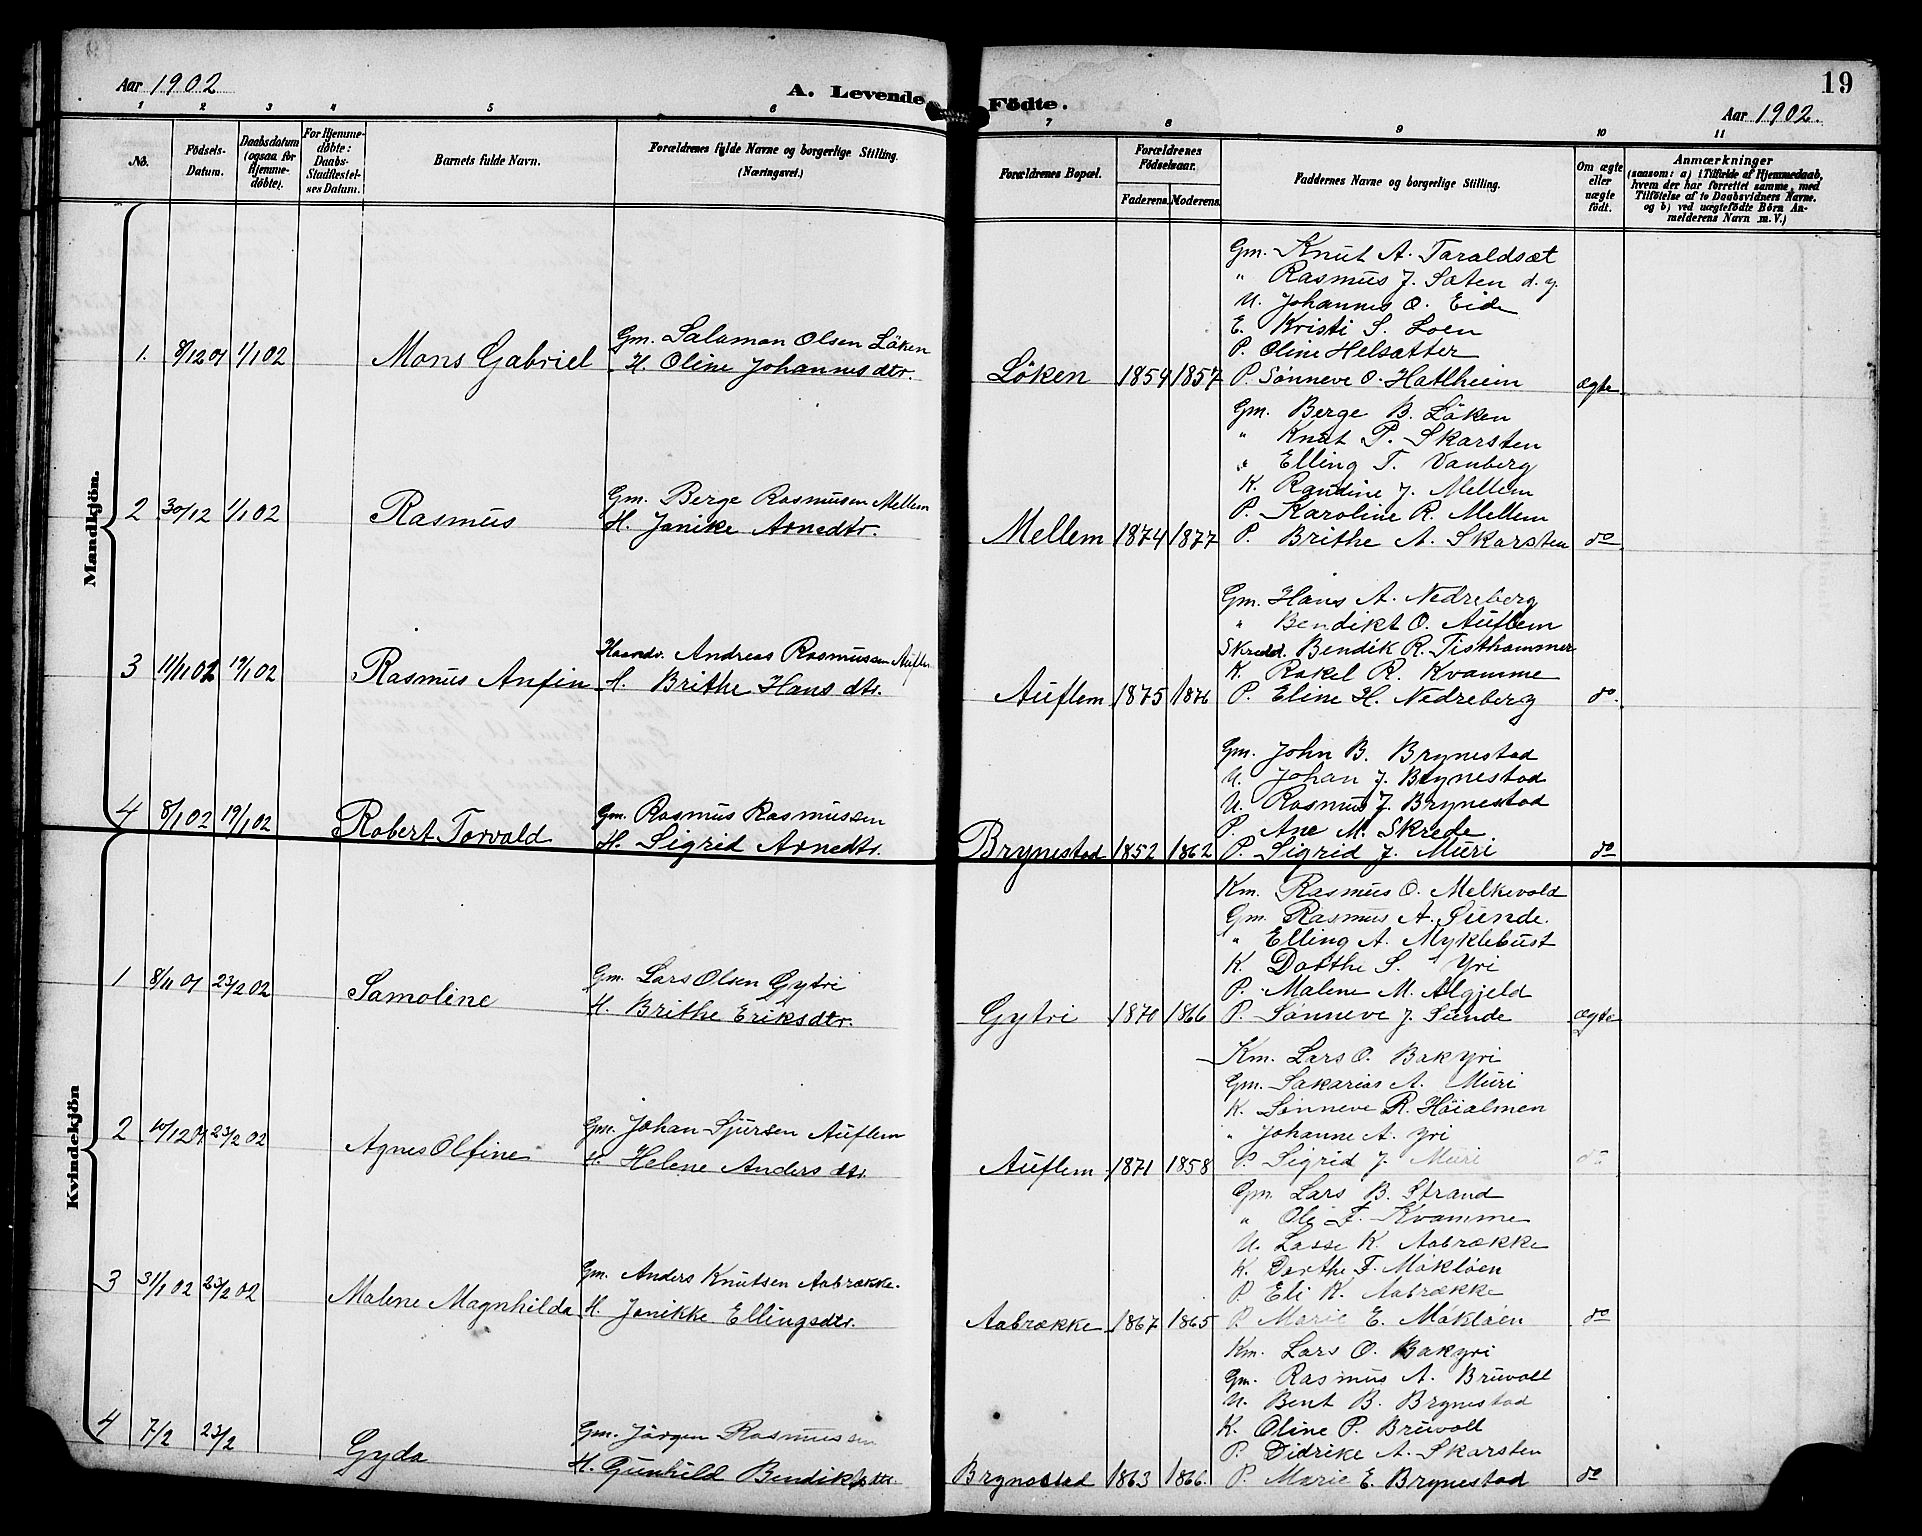 Aar 1902
A. Levende Fødte.
19
Aar 1902.
1 2 3 4 5 6 7 8 9 10 11
No.
Fødsels-
Datum.
Daabsdatum
(ogsaa for
Hjemme-
døbte).
For Hjemme-
døbte:
Daabs-
Stadfæstel-
ses Datum.
Barnets fulde Navn.
Forældrenes fulde Navne og borgerlige Stilling.
(Næringsvei.)
Forældrenes Bopæl.
Forældrenes
Fødselsaar.
Faderens. Moderens.
Faddernes Navne og borgerlige Stilling.
Om ægte
eller
uægte
født.
Anmærkninger
(saasom: a) i Tilfælde af Hjemmedaab,
hvem der har forrettet samme, med
Tilføielse af to Daabsvidners Navne.
og b) ved uægtefødte Børn An-
melderens Navn m. V.)
Mandkjön.
Gm. Knut A. Taraldsæt
" Rasmus J. Sæten d. y.
U. Johannes O. Eide
E. Kristi S. Loen
P. Oline Helsætter
1. 8/12 01 1/1 02 Mons Gabriel Gm. Salamon Olsen Löken
H. Oline Johannesdtr.
Löken 1859 1857 P. Sønneve O. Hatlheim ægte
Gm. Berge B. Löken
" Knut P. Skarsten
" Elling T. Vanberg
K. Raudine J. Mellem
P. Karoline R. Mellem
2 30/12 1/1 02 Rasmus Gm. Berge Rasmusen Mellem
H. Janike Arnedtr.
Mellem 1874 1877 P. Brithe A. Skarsten do
Gm. Hans A. Nedreberg
" Bendikt O. Auflem
Skredd. Bendik R. Tisthammer
K. Rakel R. Kvamme
3 11/11 01 19/1 02 Rasmus Anfin Haandv. Andreas Rasmussen Auflem
H. Brithe Hansdtr.
Auflem 1875 1876 P. Eline H. Nedreberg do.
Gm. John B. Brynestad
U. Johan J. Brynestad
U. Rasmus J. Brynestad
P. Ane M. Skrede
4 8/1 02 19/1 02 Robert Torvald Gm. Rasmus Rasmussen
H. Sigrid Arnedtr.
Brynestad 1852 1862 P. Sigrid J. Muri do
Kvindekjön
Km. Rasmus O. Melkevold
Gm. Rasmus A. Sunde.
" Elling A. Myklebust
K. Dorthe S. Yri
P. Malene M. Algjeld
1 8/11 01 23/2 02 Samoline Gm. Lars Olsen Gytri
H. Brithe Eriksdtr.
Gytri 1870 1866 P. Sønneve J. Sunde ægte
Km. Lars O. Bakyri
Gm. Sakarias A. Muri
K. Sønneve R. Höialmen
" Johanne A. Yri
2 10/12 01 23/2 02 Agnes Olfine Gm. Johan Sjursen Auflem
H. Helene Andersdtr.
Auflem 1871 1858 P. Sigrid J. Muri do
Gm. Lars B. Strand
" Ole F. Kvamme
U. Lasse K. Aabrække
K. Dorthe F. Mökløen
P. Eli K. Aabrække
3 31/1 02 23/2 02 Malene Magnhilda Gm. Anders Knutsen Aabrække.
H. Janikke Ellingsdtr.
Aabrække 1867 1865 P. Marie E. Mökløen do
Km. Lars O. Bakyri
Gm. Rasmus A. Bruvoll
U. Bent B. Brynestad
K. Oline P. Bruvoll
P. Didrike A. Skarsten
4 7/2 23/2 Gyda Gm. Jörgen Rasmussen
H. Gunhild Bendiktsdtr.
Brynestad 1863 1866. P. Marie E. Brynestad do